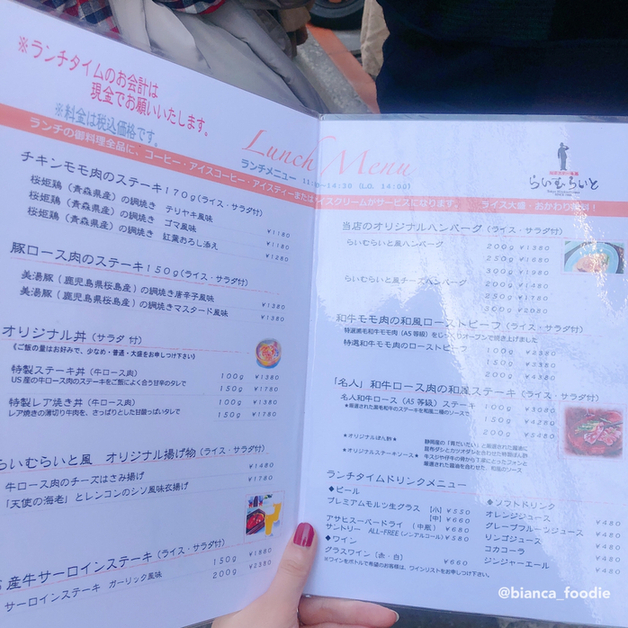 ※ランチタイムのお会計は
現金でお願いいたします。
※料金は税込価格です。
Lunch Menu
ランチメニュー 11:30~14:30 (L.O. 14:00)
ランチの御料理全品に、コーヒー・アイスコーヒー・アイスティーまたはアイスクリームがサービスになります。 ライス大盛・おかわり無料!
チキンモモ肉のステーキ170g(ライス・サラダ付)
桜姫鶏(青森県産)の網焼き テリヤキ風味 ¥1180
桜姫鶏(青森県産)の網焼き ゴマ風味 ¥1180
桜姫鶏(青森県産)の網焼き 紅葉おろし添え ¥1280
豚ロース肉のステーキ150g(ライス・サラダ付)
美湯豚(鹿児島県桜島産)の網焼き唐辛子風味 ¥1380
美湯豚(鹿児島県桜島産)の網焼きマスタード風味 ¥1380
オリジナル丼(サラダ 付)
《ご飯の量はお好みで、少なめ・普通・大盛をお申しつけ下さい》
特製ステーキ丼(牛ロース肉) 100g ¥1380
US産の牛ロース肉のステーキをご飯によく合う甘辛のタレで 150g ¥1780
特製レア焼き丼(牛ロース肉) 100g ¥1380
レア焼きの薄切り牛肉を、さっぱりとした甘酸っぱいタレで 150g ¥1780
らいむらいと風 オリジナル揚げ物(ライス・サラダ付)
牛ロース肉のチーズはさみ揚げ ¥1480
「天使の海老」とレンコンのシソ風味衣揚げ ¥1780
産牛サーロインステーキ(ライス・サラダ付)
サーロインステーキ ガーリック風味 150g ¥1880
200g ¥2380
らいむらいと
当店のオリジナルハンバーグ(ライス・サラダ付)
らいむらいと風ハンバーグ 200g ¥1380
250g ¥1680
300g ¥1980
らいむらいと風チーズハンバーグ 200g
250g
300g
和牛モモ肉の和風ローストビーフ(ライス・サラダ付)
特選黒毛和牛モモ肉(A5等級)をじっくりオーブンで焼き上げました
特選和牛モモ肉のローストビーフ 100g
150g
200g
「名人」和牛ロース肉の和風ステーキ(ライス・サラダ付)
名人和牛ロース(A5等級)ステーキ 100g ¥3080
150g ¥4280
200g
★オリジナルぽん酢★
★オリジナルステーキソース★
ランチタイムドリンクメニュー
◆ビール
プレミアムモルツ生グラス [小] ¥550
[中] ¥660
アサヒスーパードライ (中瓶) ¥680
サントリー ALL-FREE (ノンアルコール) ¥580
◆ワイン
グラスワイン(赤・白) ¥660
※ワインをボトルで希望のお客様は、ワインリストをお申しつけ下さい。
◆ソフトドリンク
オレンジジュース ¥480
グレープフルーツジュース ¥480
リンゴジュース ¥480
コカコーラ ¥480
ジンジャーエール ¥480
@bianca_foodie